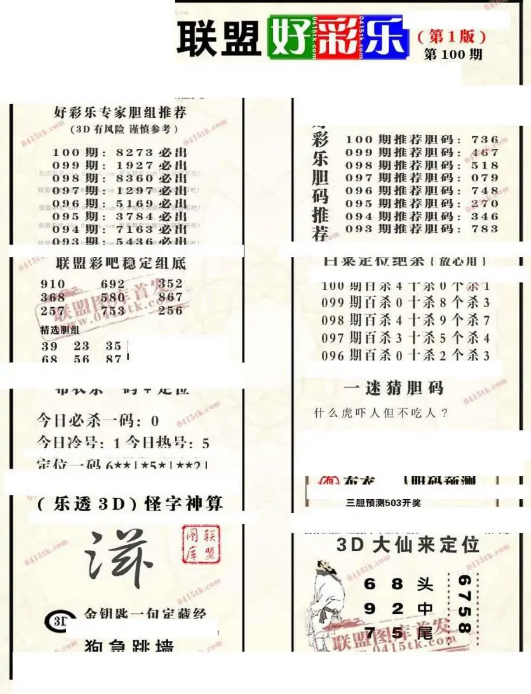 联盟 好彩乐 (第1版)
第100期
好彩乐专家胆组推荐
(3D有风险 谨慎参考)
100期: 8273 必出
099期: 1927 必出
098期: 8360 必出
097期: 1297 必出
096期: 5169 必出
095期: 3784 必出
094期: 7163 必出
093期: 5436 必出
联盟彩吧稳定组底
910 692 352
368 580 867
257 753 256
精选胆组
39 23 35
68 56 87
今日必杀一码: 0
今日冷号: 1 今日热号: 5
定位一码 6**|*5*|**2|
(乐透3D) 怪字神算
联盟图库
3D 金钥匙一句定藏经
狗急跳墙
好彩乐胆码推荐
100期推荐胆码: 736
099期推荐胆码: 467
098期推荐胆码: 518
097期推荐胆码: 079
096期推荐胆码: 748
095期推荐胆码: 270
094期推荐胆码: 346
093期推荐胆码: 783
白菜定位绝杀 (放心用)
100期百杀4十杀0个杀1
099期百杀0十杀8个杀3
098期百杀4十杀9个杀7
097期百杀3十杀5个杀4
096期百杀0十杀2个杀3
一迷猜胆码
什么虎吓人但不吃人?
三胆预测503开奖
3D大仙来定位
6 8 头
9 2 中
7 5 尾
6758
联盟图库首发
www.0415tk.com
联盟图库首发
www.0415tk.com
0415tk.com